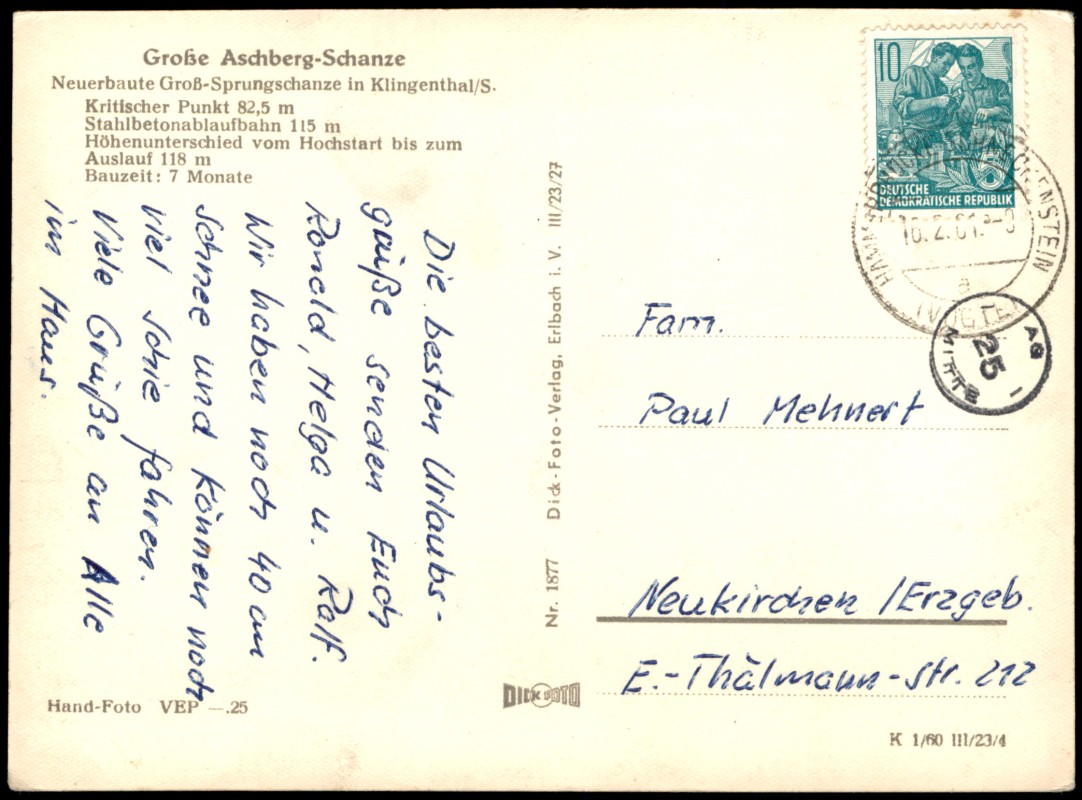 Große Aschberg-Schanze
Neuerbaute Groß-Sprungschanze in Klingenthal/S.
Kritischer Punkt 82,5 m
Stahlbetonablaufbahn 115 m
Höhenunterschied vom Hochstart bis zum
Auslauf 118 m
Bauzeit: 7 Monate
Die besten Urlaubs-
grüße senden Euch
Ronald, Helga u. Ralf.
Wir haben noch 40 cm
Schnee und können noch
viel Schie fahren.
Viele Grüße an Alle
im Haus.
Hand-Foto VEP —.25
Nr. 1877 Dick-Foto-Verlag, Erlbach i. V. III/23/27
DICK FOTO
10
DEUTSCHE
DEMOKRATISCHE REPUBLIK
16.2.61
a
AG
25
MITTE
Fam.
Paul Mehnert
Neukirchen /Erzgeb.
E.-Thälmann-Str. 212
K 1/60 III/23/4